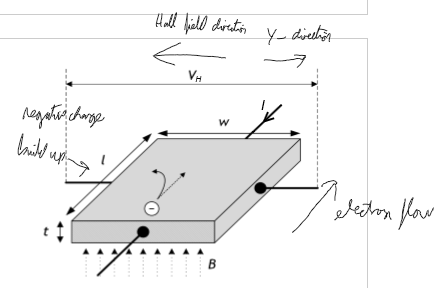 Hall field direction
Y-direction
V_H
negative charge
build up
I
w
l
t
B
electron flow